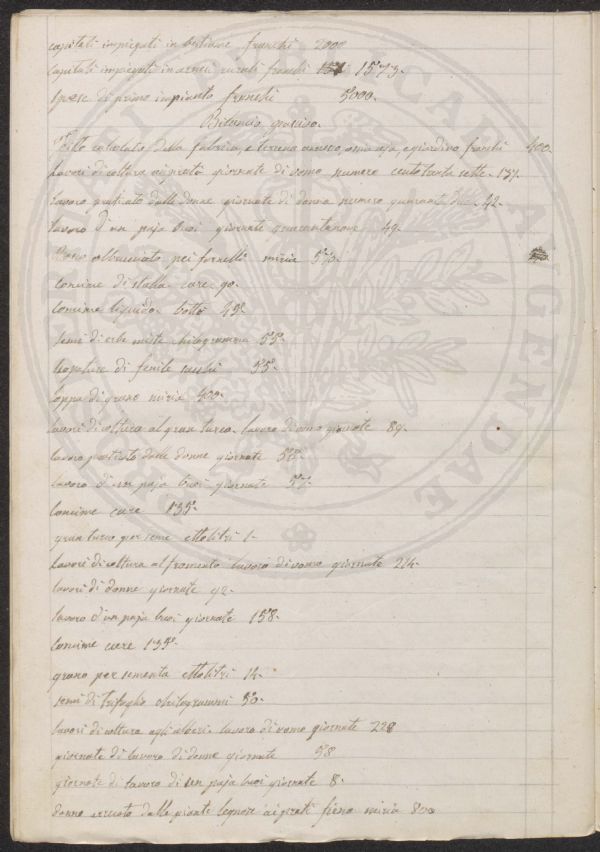 capitali impiegati in bestiame franchi 2000
capitali impiegati in arnesi rurali franchi 1573.
spese di primo impianto franchi 5000.
Bilancio passivo.
Fitto calcolato della fabbrica, e terreno annesso, ossia aja, e giardino franchi 400.
Lavori di coltura ai prati giornate di uomo numero cento trenta sette. 137.
Lavoro prestato dalle donne giornate di donna numero quaranta due. 42.
Lavoro d'un pajo buoi giornate quarantanove 49.
abbruciato pei fornelli miria 570.
Concime di stalla care 90.
Concime liquido botti 49.
Semi di erbe miste chilogrammi 55.
di fenile sacchi 55.
loppa di grano miria 400.
Lavori di coltura al gran turco. lavoro di uomo giornate 89.
Lavoro prestato dalle donne giornate 58.
Lavoro d'un pajo buoi giornate 57.
Concime care 135.
gran turco per seme ettolitri 1.
Lavori di coltura al fromento lavoro di uomo giornate 224.
Lavori di donne giornate 92.
Lavoro d'un pajo buoi giornate 158.
Concime care 135.
grano per sementa ettolitri 14.
semi di trifoglio chilogrammi 50.
Lavori di coltura agli alberi. lavoro di uomo giornate 228
giornate di lavoro di donne giornate 58
giornate di lavoro di un pajo buoi giornate 8.
danno recato dalle piante legnose ai prati fieno miria 800